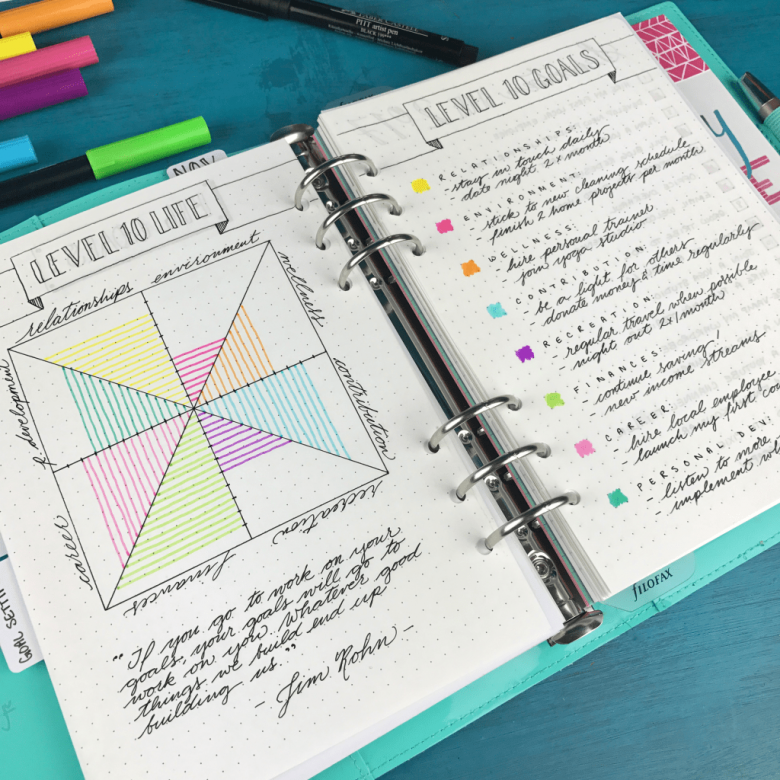 FABER-CASTELL
PITT artist pen
BLACK
S
NOV
LEVEL 10 LIFE
relationships
environment
wellness
contribution
recreation
finances
career
p. development
"If you go to work on your
goals, your goals will go to
work on you. Whatever good
things we build end up
building us."
- Jim Rohn -
GOAL SETTI
LEVEL 10 GOALS
RELATIONSHIPS:
- stay in touch daily
date night 2x month
ENVIRONMENT:
- stick to new cleaning schedule
finish 2 home projects per month
WELLNESS:
- hire personal trainer
join yoga studio
CONTRIBUTION:
- be a light for others
- donate money & time regularly
RECREATION:
- regular travel when possible
- night out 2x/month
FINANCES:
- continue saving!
- new income streams
CAREER:
- hire local employee
- launch my first co
PERSONAL DEV:
- listen to more
implement wh
filofax